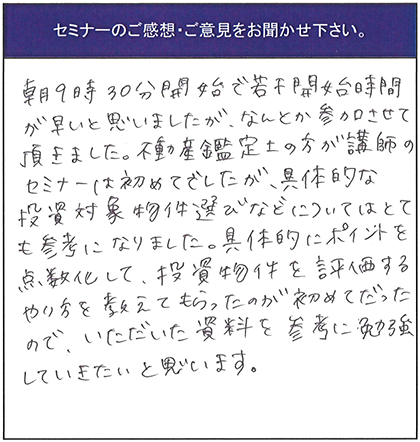 セミナーのご感想・ご意見をお聞かせ下さい。
朝9時30分開始で若干開始時間
が早いと思いましたが、なんとか参加させて
頂きました。不動産鑑定士の方が講師の
セミナーは初めてでしたが、具体的な
投資対象物件選びなどについてはとて
も参考になりました。具体的にポイントを
点数化して、投資物件を評価する
やり方を教えてもらったのが初めてだった
ので、いただいた資料を参考に勉強
していきたいと思います。